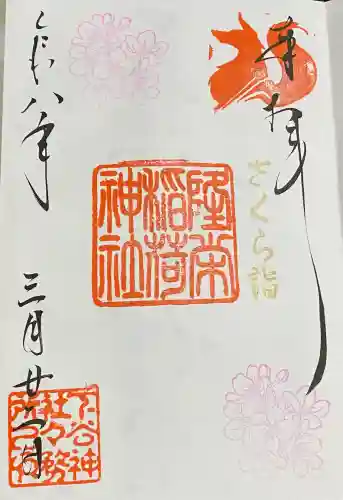 奉拝
さくら詣
隆栄
稲荷
神社
令和八年
三月廿
下谷神
社々務
所之印